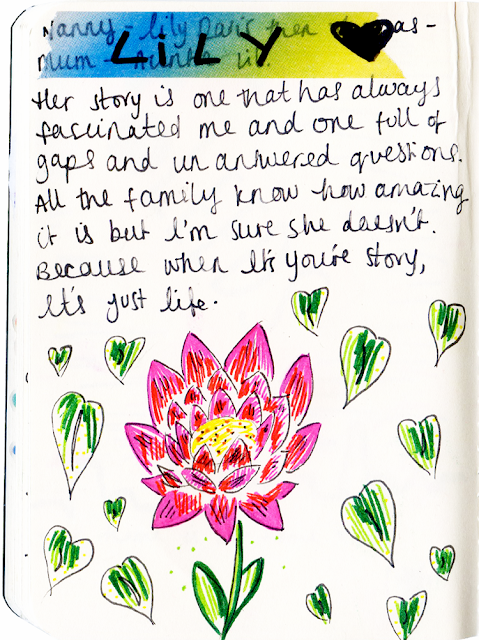 Nanny - Lily Davis then Thomas -
Mum - Aunty Lil.
LILY
Her story is one that has always
fascinated me and one full of
gaps and unanswered questions.
All the family know how amazing
it is but I'm sure she doesn't.
Because when It's you're story,
It's just life.